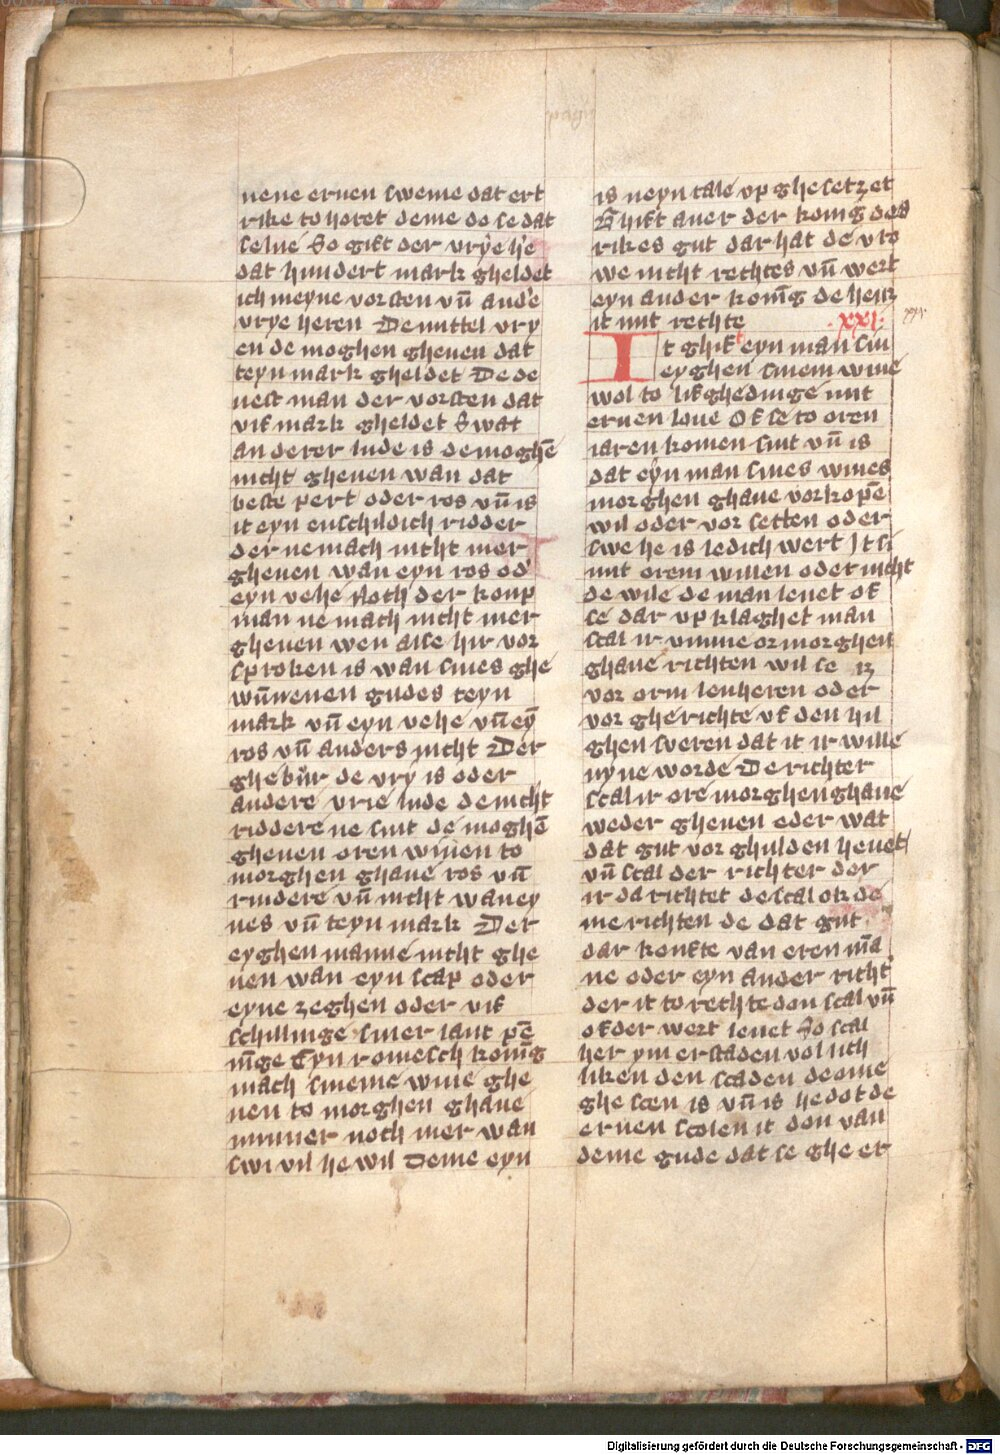 nene eruen sweme dat ert
rike to horet deme do se dat
selue So gift der vrye he
dat hundert mark gheldet
ich meyne vorsten vn̄ and̛e
vrye heren De mittel vry
en de moghen gheuen dat
teyn mark gheldet De de
nest man der vorsten dat
vif mark gheldet Swat
an derer lude is de moghē
nicht gheuen wan dat
beste pert oder ros vn̄ is
it eyn enschildich ridder
der ne mach nicht mer
gheuen wan eyn ros od̛
eyn vehe Noch der koup
man ne mach nicht mer
gheuen wen alse hir vor
sproken is wan sines ghe
wu̅nenen gudes teyn
mark vn̄ eyn vehe vn̄ ey̅
ros vn̄ anders nicht Der
ghebur de vry is oder
andere vrie lude de nicht
riddere ne sint de moghē
gheuen oren wiuen to
morghen ghaue ros vn̄
rindere vn̄ nicht wan ey
nes vn̄ teyn mark Der
eyghen manne nicht ghe
uen wan eyn scap oder
eyne zeghen oder vif
schillinge siner lant pē
ni̅ge Eyn romesch koni̅g
mach sineme wiue ghe
uen to morghen ghaue
minner noch mer wan
swi vil he wil Deme eyn
is neyn tale vp ghe setzet
Ghift auer der konig des
rikes gut dar hat de vro
we nicht rechtes vn̄ wert
eyn ander koni̅g de heitz
it mit rechte .XXI.
xxv
It ghift eyn man sin
eyghen sinem wiue
wol to lifghedinge mit
eruen loue Of se to oren
iaren komen sint vn̄ is
dat eyn man sines wiues
morghen ghaue vorkopē
wil oder vor setten oder
swe he is ledich wert It si
mit orem willen oder nicht
de wile de man leuet of
se dar vp klaghet man
scal ir vmme or morghen
ghaue richten wil se iz
vor orm lenheren oder
vor gherichte vf den hil
ghen sweren dat it ir wille
nyne worde De richter
scal ir ore morghen ghaue
weder gheuen eder wat
dat gut vor ghulden heuet
vn̄ scal der richter der
ir da richtet de scal ok de
me richten de dat gut
dar koufte van eren ma̅
ne oder eyn ander richt̛
der it to rechte don scal vn̄
of der wert leuet So scal
her ym erstaden vol lich
liken den scaden de ome
ghe scen is vn̄ is he dot de
eruen scolen it don van
deme gude dat se ghe er